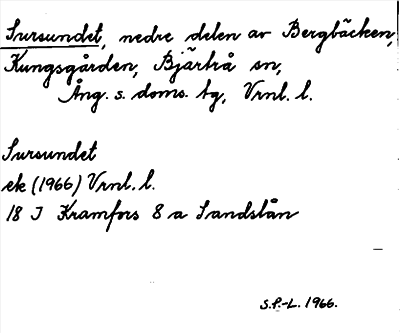 Sursundet, nedre delen av Bergbäcken,
Kungsgården, Bjärtrå sn,
Ång. s. doms. tg, Vrnl. l.
Sursundet
ek (1966) Vrnl. l.
18 J Kramfors 8 a Sandslån
S.F.-L. 1966.